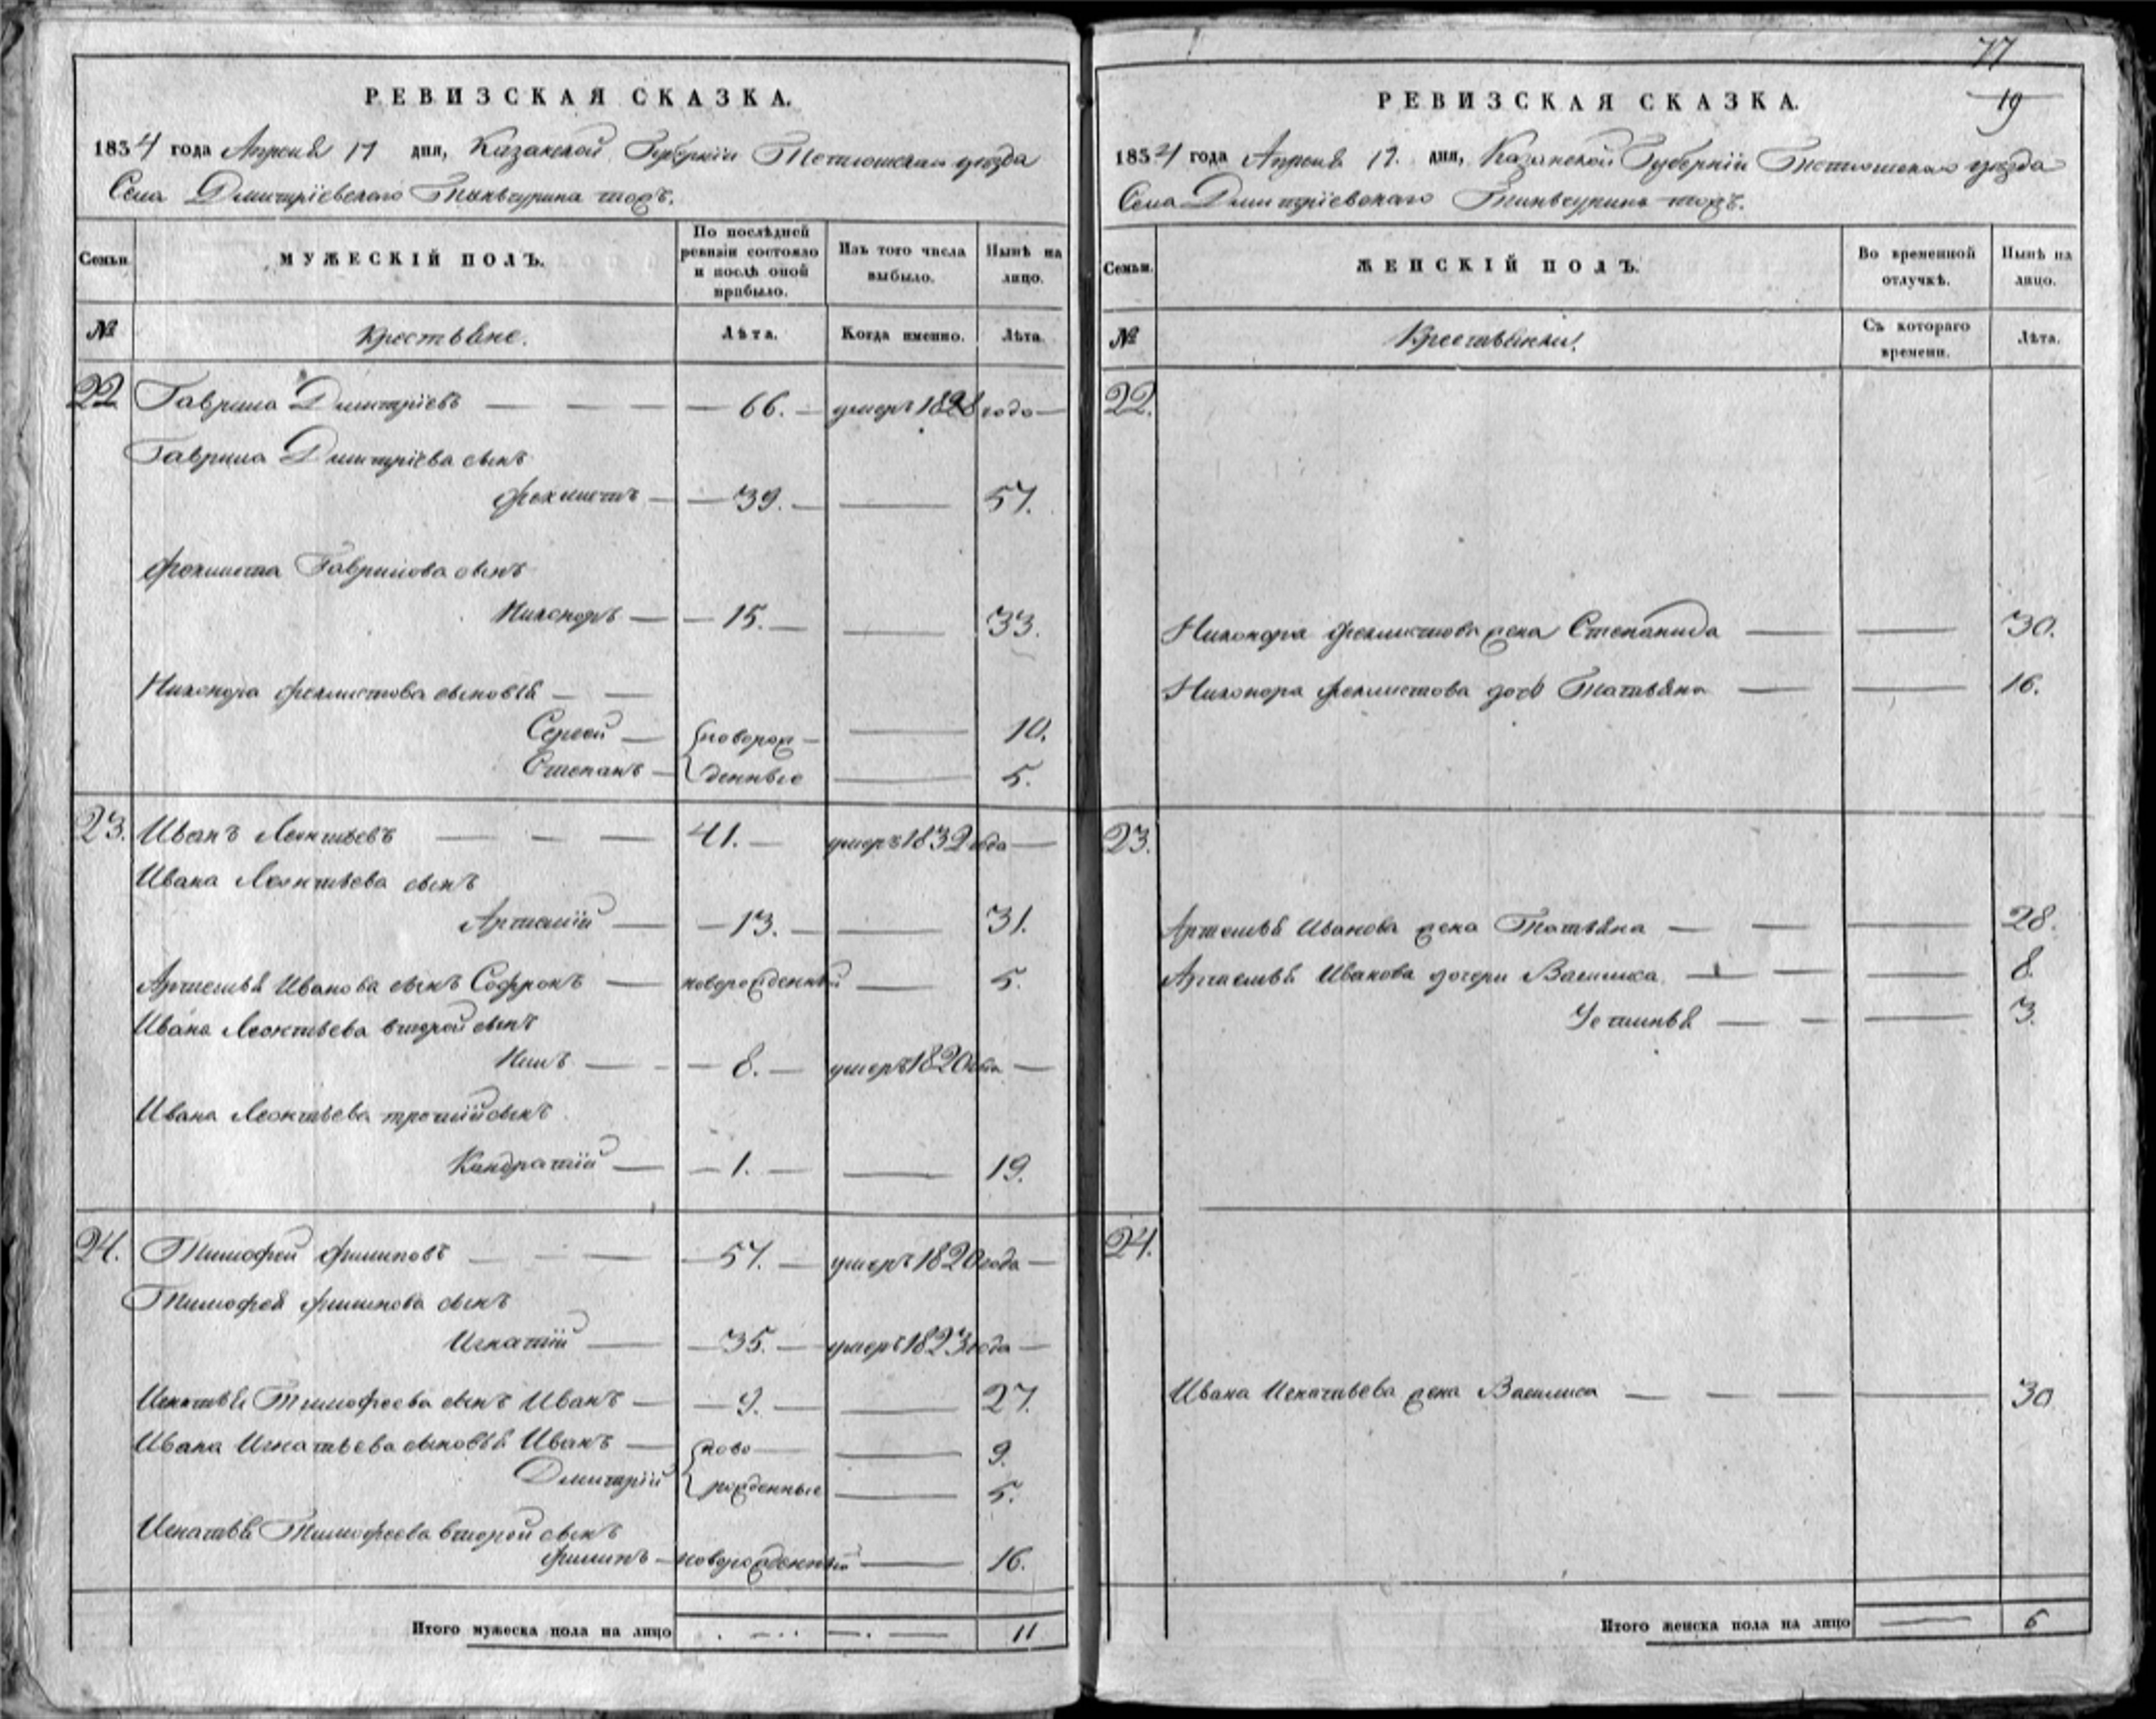 РЕВИЗСКАЯ СКАЗКА.
1834 года Апреля 17 дня, Казанской Губернiи Тетюшскаго уѣзда
Села Дмитрiевскаго тожъ.
Семьи.
МУЖЕСКIЙ ПОЛЪ.
По послѣдней ревизiи состояло и послѣ оной прибыло.
Изъ того числа выбыло.
Нынѣ на лицо.
№
Крестьяне.
Лѣта.
Когда именно.
Лѣта.
22 Гаврила Дмитрiевъ 66. умеръ 1828 года
Гаврила Дмитрiева сынъ
Феклистъ 39. 57.
Феклиста Гаврилова сынъ
Никоноръ 15. 33.
Никонора Феклистова сыновья
Сергей новорож- 10.
Степанъ денные 5.
23. Иванъ Леонтьевъ 41. умеръ 1832 года
Ивана Леонтьева сынъ
Артемiй 13. 31.
Артемья Иванова сынъ Софронъ новорожденный 5.
Ивана Леонтьева второй сынъ
8. умеръ 1820 года
Ивана Леонтьева третiй сынъ
Кондратiй 1. 19.
24. Тимофей Филиповъ 57. умеръ 1820 года
Тимофея Филипова сынъ
Игнатiй 35. умеръ 1823 года
Игнатья Тимофеева сынъ Иванъ 9. 27.
Ивана Игнатьева сыновья Иванъ ново 9.
Дмитрiй рожденные 5.
Игнатья Тимофеева второй сынъ
Филипъ новорожденный 16.
Итого мужеска пола на лицо 11
77
19
РЕВИЗСКАЯ СКАЗКА.
1834 года Апреля 17. дня, Казанской Губернiи Тетюшскаго уѣзда
Села Дмитрiевскаго тожъ.
Семьи.
ЖЕНСКIЙ ПОЛЪ.
Во временной отлучкѣ.
Нынѣ на лицо.
№
Крестьянки.
Съ котораго времени.
Лѣта.
22.
Никонора Феклистова жена Степанида 30.
Никонора Феклистова дочь Татьяна 16.
23.
Артемья Иванова жена Татьяна 28.
Артемья Иванова дочери Василиса 8.
Устинья 3.
24.
Ивана Игнатьева жена Василиса 30
Итого женска пола на лицо 6